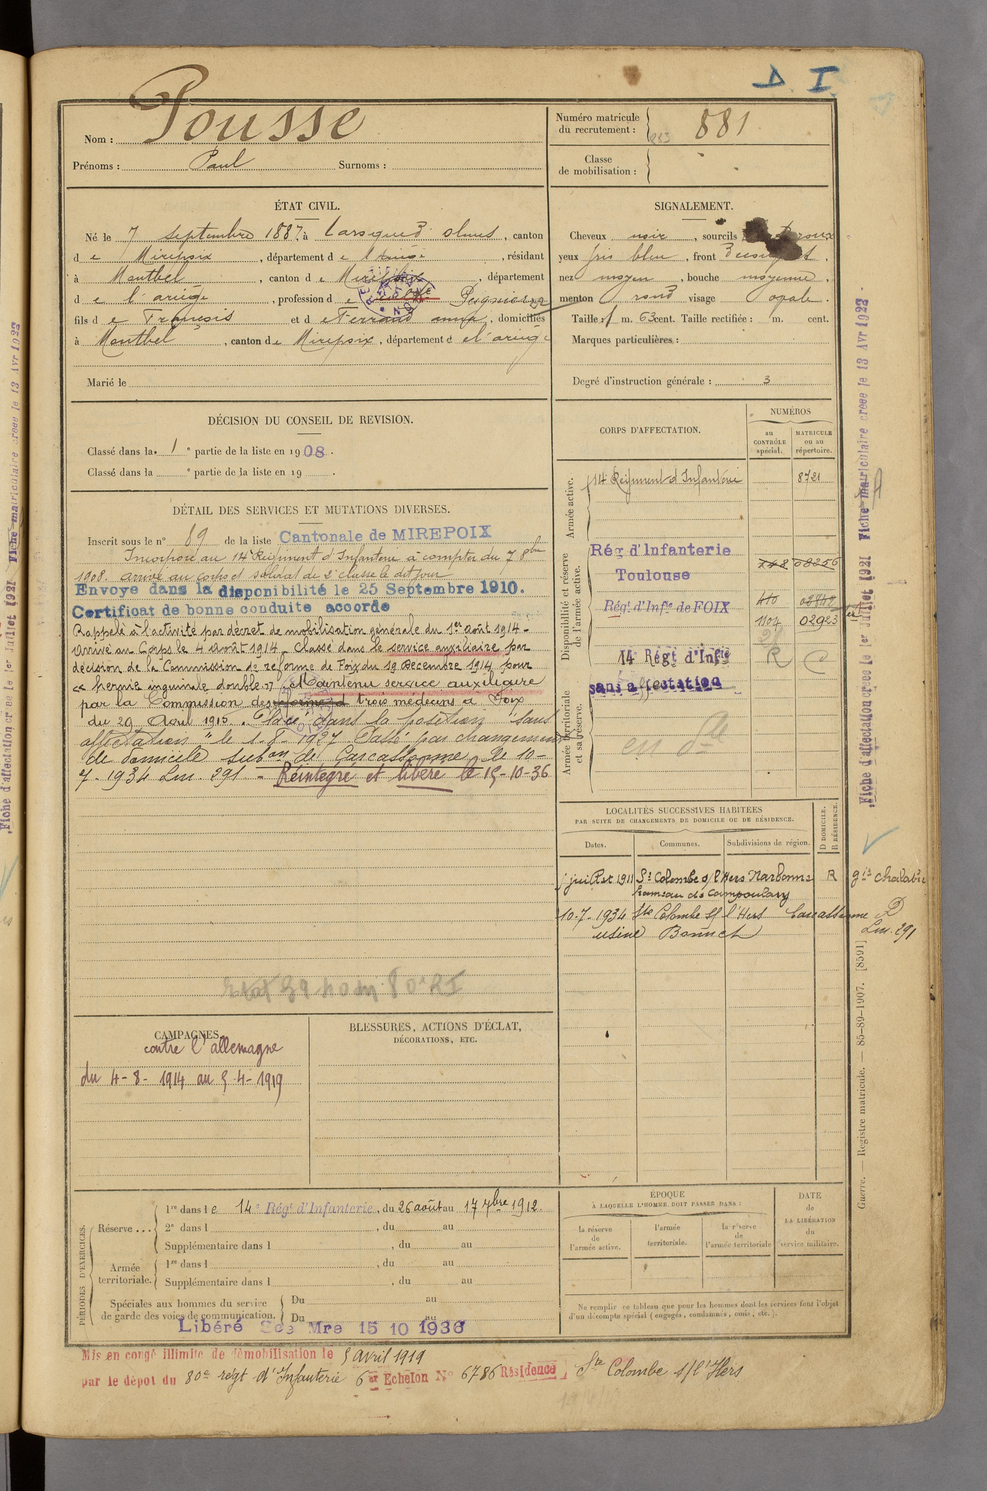 D. I.
Nom : Pousse
Prénoms : Paul Surnoms :
Numéro matricule du recrutement : 881
Classe de mobilisation :
ÉTAT CIVIL.
Né le 7 septembre 1887, à Laroque d'Olmes, canton
de Mirepoix, département de l'Ariège, résidant
à Montbel, canton de Mirepoix, département
d e l'ariège, profession de
fils de François et de Ferrand anna, domiciliés
à Montbel, canton de Mirepoix, département d e l'ariège
Marié le
SIGNALEMENT.
Cheveux noir, sourcils
yeux gris bleu, front
nez moyen, bouche moyenne,
menton rond visage ovale.
Taille : 1 m. 63 cent. Taille rectifiée : m. cent.
Marques particulières :
Degré d'instruction générale : 3
DÉCISION DU CONSEIL DE REVISION.
Classé dans la 1e partie de la liste en 1908.
Classé dans la e partie de la liste en 19
DÉTAIL DES SERVICES ET MUTATIONS DIVERSES.
Inscrit sous le n° 69 de la liste Cantonale de MIREPOIX
Incorporé au 14e Régiment d'Infanterie à compter du 7 8bre
1908. arrivé au corps et soldat de 2e classe le dit jour
Envoyé dans la disponibilité le 25 Septembre 1910.
Certificat de bonne conduite accordé
Rappelé à l'activité par décret de mobilisation générale du 1er août 1914 -
Arrivé au Corps le 4 Août 1914. Classé dans le service auxiliaire par
décision de la Commission de réforme de Foix du 19 Décembre 1914 pour
"hernie inguinale double" Maintenu service auxiliaire
par la Commission des réforme d trois médecins à Foix
du 29 Avril 1915. Placé dans la position "sans
affectation" le 1-8-1927 Passé par changement
de domicile subon de Carcassonne, le 10-
7-1934 Lm. 291 - Réintégré et libéré le 15-10-36
CORPS D'AFFECTATION.
NUMÉROS
au CONTRÔLE spécial.
MATRICULE ou au répertoire.
Armée active.
14e Régiment d'Infanterie 8721
Disponibilité et réserve de l'armée active.
Rég d'Infanterie
Toulouse
Régt d'Infie de FOIX
1104 02923
14 Régt d'Infie R
sans affectation
Armée territoriale et sa réserve.
LOCALITÉS SUCCESSIVES HABITÉES
PAR SUITE DE CHANGEMENTS DE DOMICILE OU DE RÉSIDENCE.
Dates. Communes. Subdivisions de région. D DOMICILE. R RÉSIDENCE.
juillet 1911 Ste Colombe s/ l'Hers Narbonne R gie Chalabre
hameau de Campoulary
10-7-1934 Ste Colombe s/ l'Hers Carcassonne D
usine Bonnet Lm. 291
CAMPAGNES.
contre l'allemagne
du 4-8-1914 au 5-4-1919
BLESSURES, ACTIONS D'ÉCLAT,
DÉCORATIONS, ETC.
PÉRIODES D'EXERCICES.
Réserve ... 1re dans le 14e Régt d'Infanterie, du 26 août au 17 7bre 1912.
2e dans l , du au
Supplémentaire dans l , du au
Armée territoriale. 1re dans l , du au
Supplémentaire dans l , du au
Spéciales aux hommes du service de garde des voies de communication. Du au
Du au
Libéré Sce Mre 15 10 1936
ÉPOQUE
À LAQUELLE L'HOMME DOIT PASSER DANS :
la réserve de l'armée active.
l'armée territoriale.
la réserve de l'armée territoriale
DATE DE LA LIBÉRATION du service militaire.
Ne remplir ce tableau que pour les hommes dont les services font l'objet
d'un décompte spécial (engagés, condamnés, omis, etc.).
Mis en congé illimité de démobilisation le 5 avril 1919
par le dépôt du 80e régt d'Infanterie 6e Echelon N° 6786 Résidence Ste Colombe s/l'Hers
Fiche d'affectation créée le 1er Juillet 1921 Fiche matriculaire créée le 13 Avr 1922
Guerre. — Registre matricule. — 85-89-1907. [8591]
Fiche d'affectation créée le 1er Juillet 1921 Fiche matriculaire créée le 13 Avr 1922